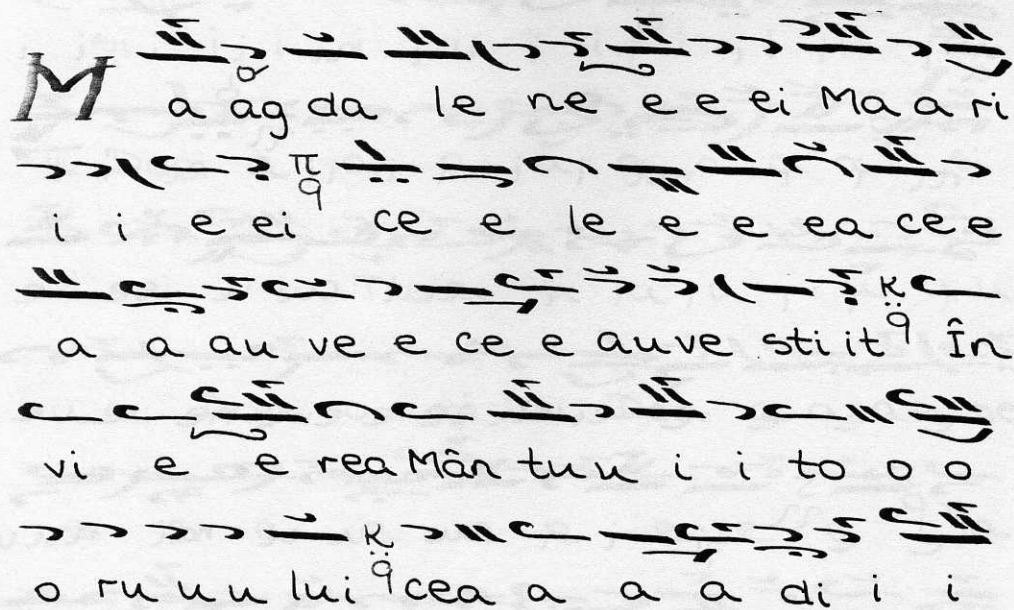 M a ag da le ne e e ei Ma a ri
i i e ei π q ce e le e e ea ce e
a a au ve e ce e au ve sti it κ q În
vi e e rea Mân tu u i i to o o
o ru u u lui κ q cea a a a di i i